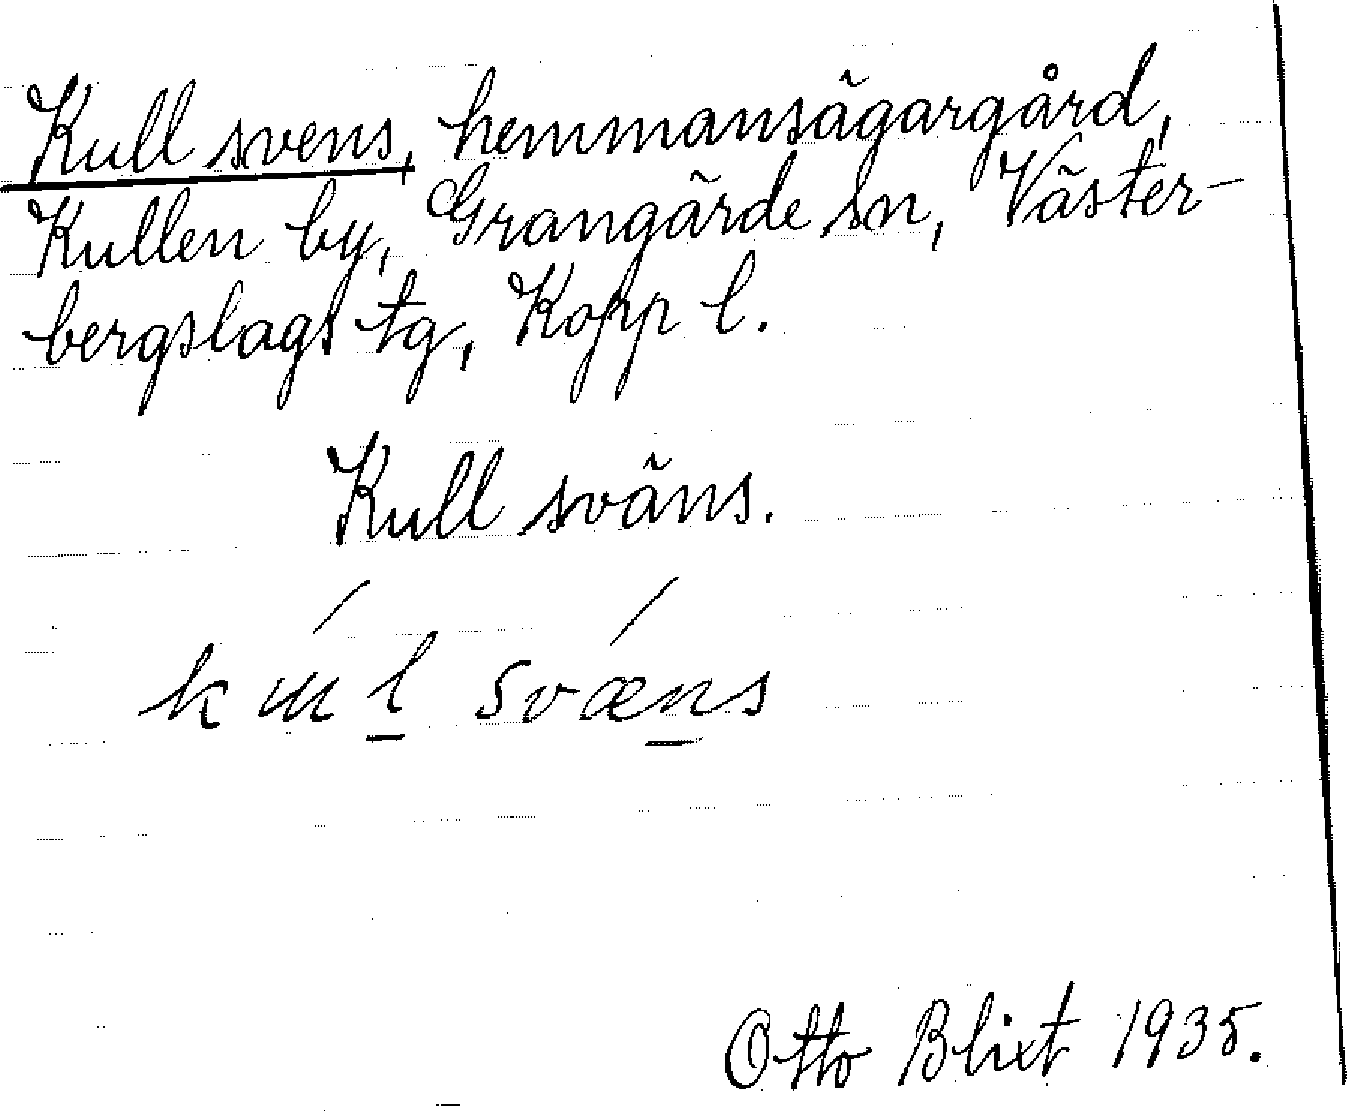 Kull svens, hemmansägargård,
Kullen by, Grangärde sn, Väster-
bergslags tg, Kopp l.
Kull sväns.
kɯ́l svǽns
Otto Blixt 1935.